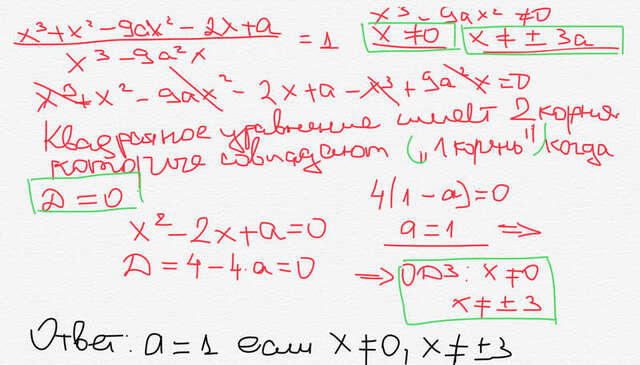 x³+x²-9ax²-2x+a / x³-9a²x = 1
x³-9ax²≠0
x≠0 x≠±3a
x³+x²-9ax²-2x+a-x³+9a²x=0
Квадратное уравнение имеет 2 корня
которые совпадают („1 корень") когда
D=0
4(1-a)=0
x²-2x+a=0
a=1 =>
D=4-4·a=0
=> ОДЗ: x≠0
x≠±3
Ответ: a=1 если x≠0, x≠±3